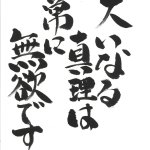 大いなる
真理は
常に
無欲です